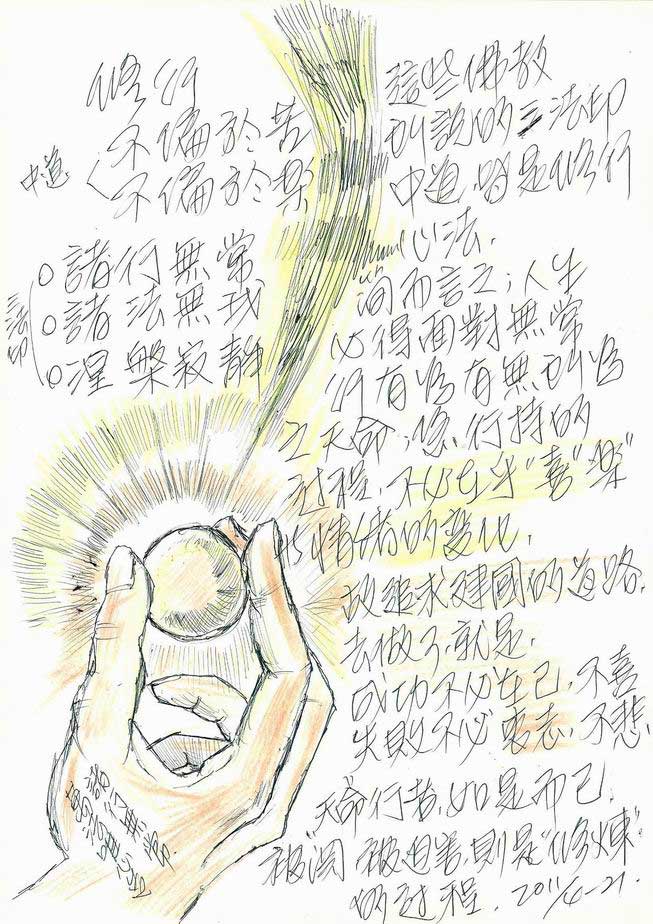 修行
不偏於苦
中道
不偏於樂
三法印
諸行無常
諸法無我
涅槃寂靜
這些佛教
所說的三法印
中道,皆是修行
心法.
簡而言之;人生
必得面對無常
行有為有無所為
之天命,您、行持的
過程,不必在乎"喜""樂"
情緒的變化,
改追求建國的道路,
去做了,就是.
成功不必在己,不喜
失敗不必喪志,不悲
"天命"行者,如是而已.
被 被迫害,則是"修煉"
的過程. 2011/4-21.